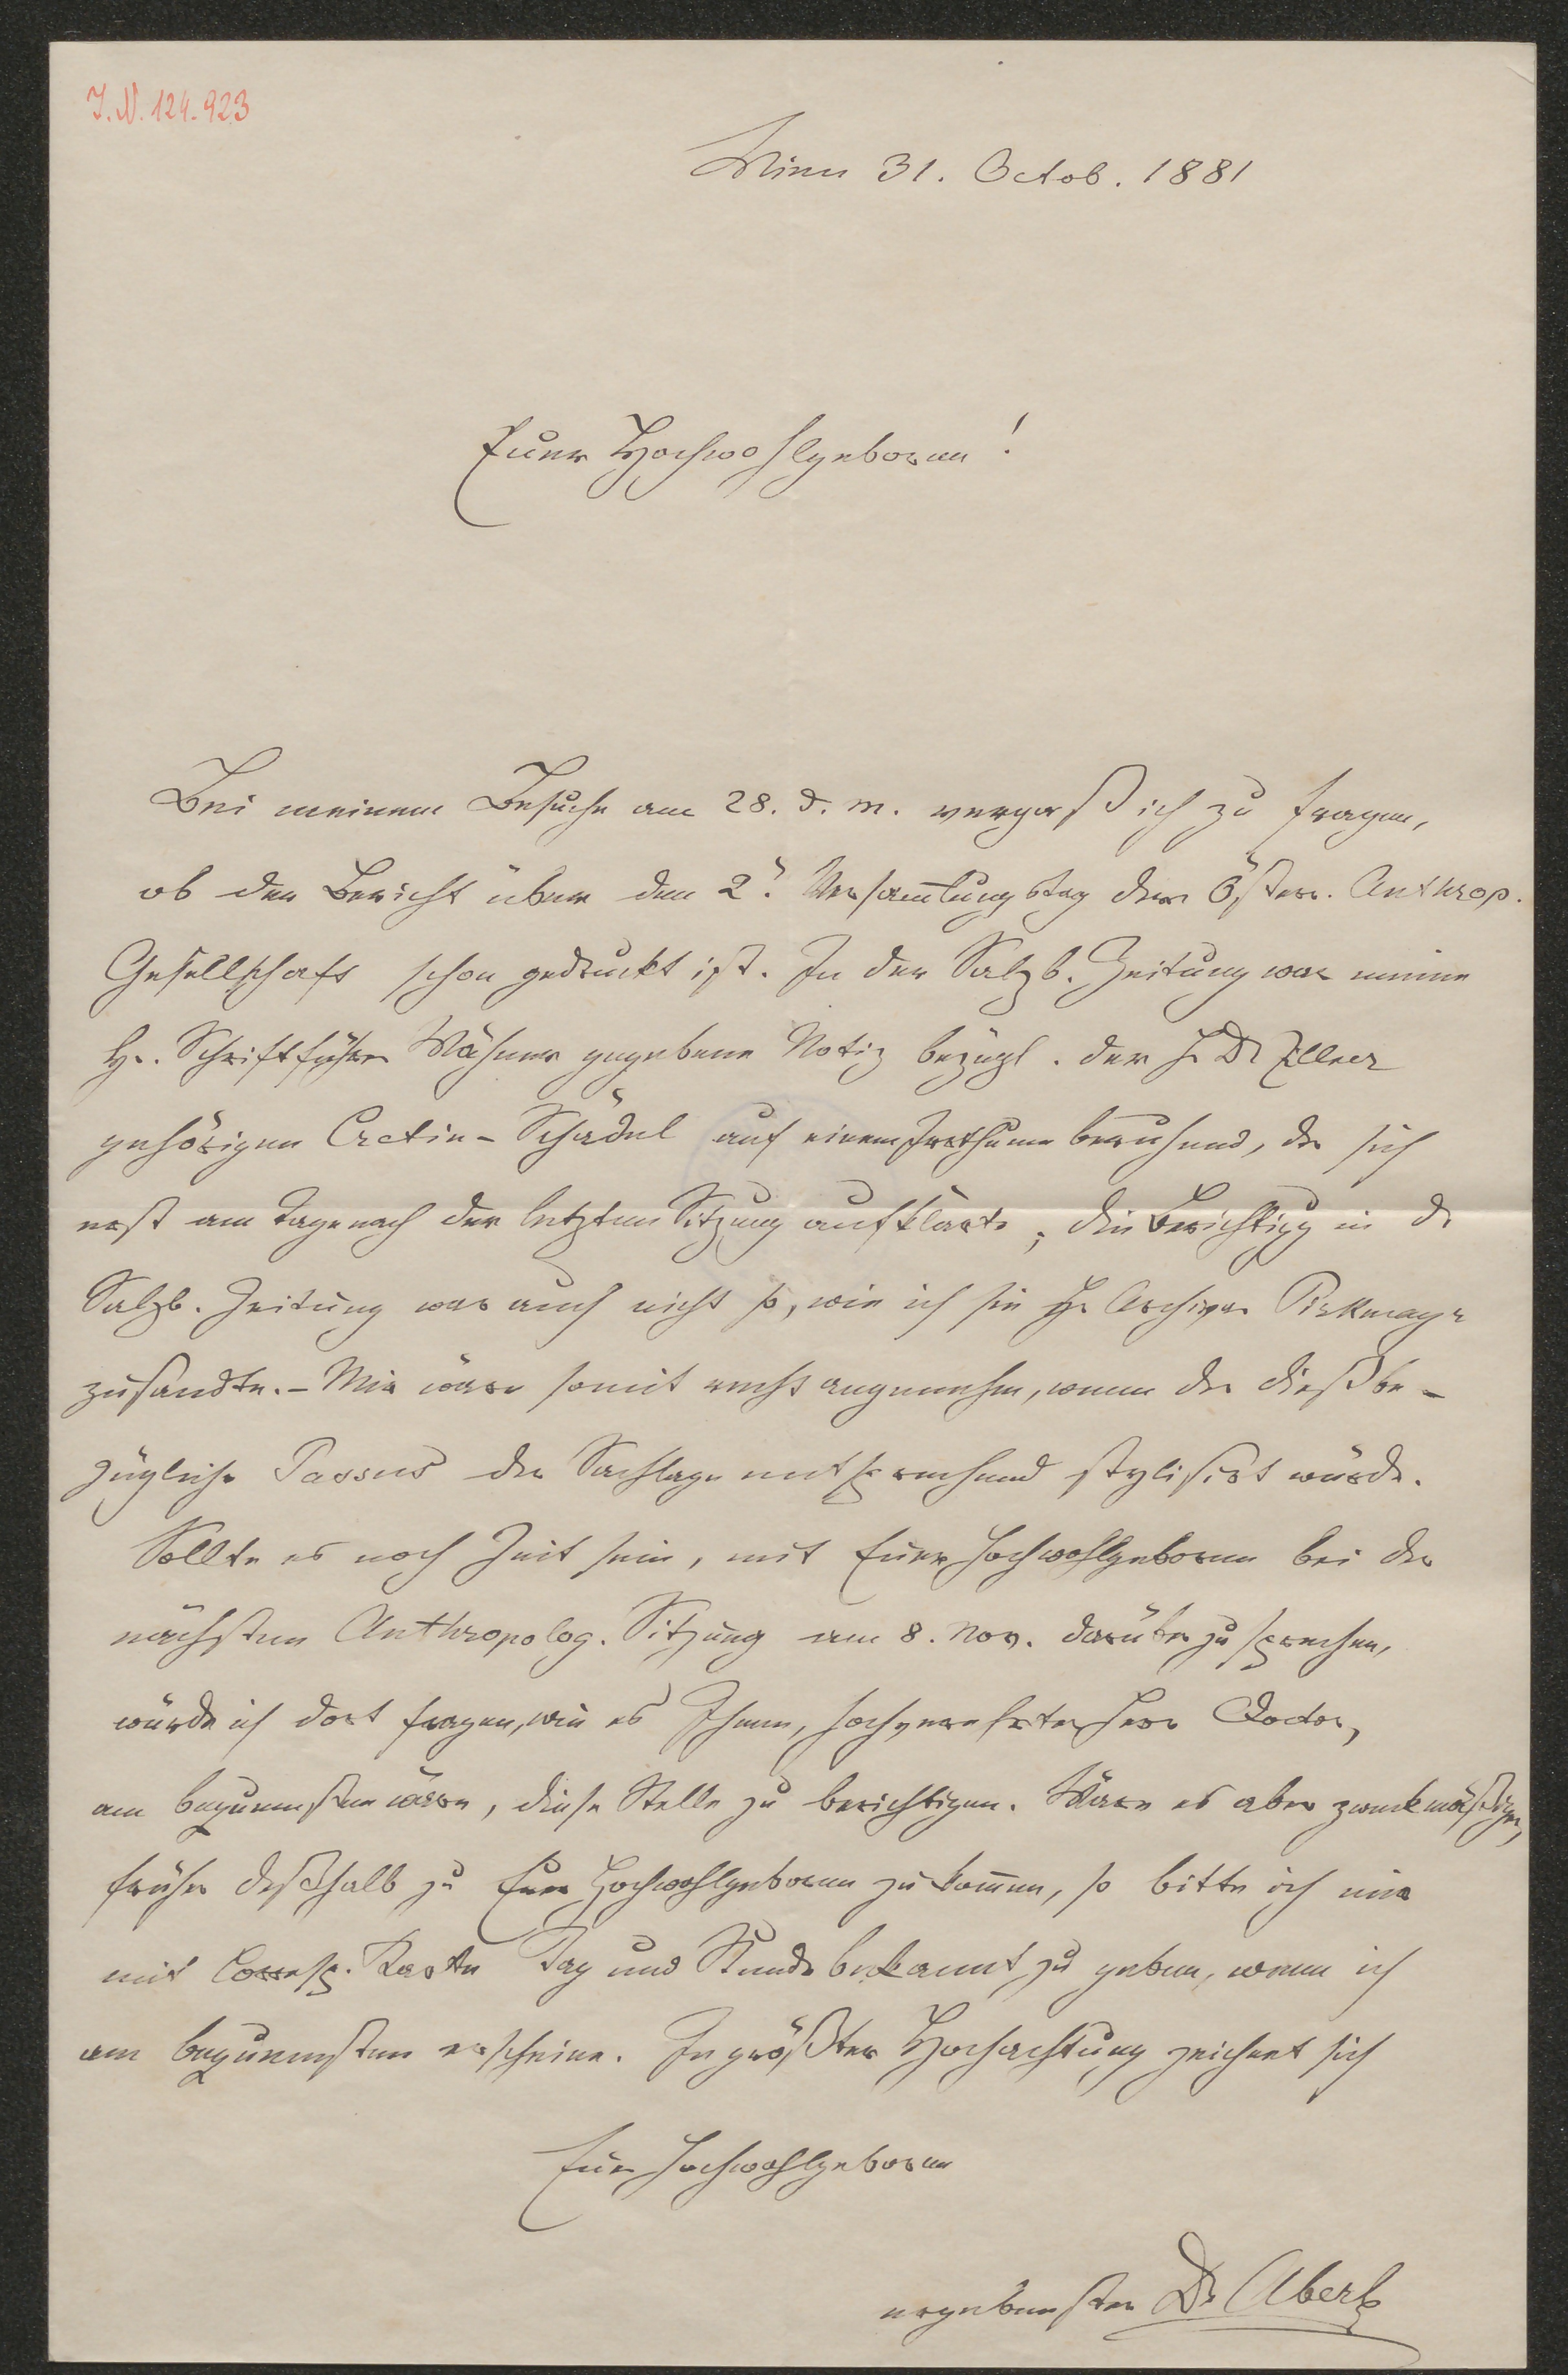 J.N. 124.923
Wien 31. Octob. 1881
Euer Hochwohlgeboren!
Bei meinem Besuche am 28. d. m. vergaß ich zu fragen,
ob der Bericht über den 2. Versam̅lungstag der Österr. Anthrop.
Gesellschaft schon gedruckt ist. In der Salzb. Zeitung war meine
H. Schriftführer Wähner gegebene Notiz bezügl. der H. Dr Zillner
gehörigen Cretin-Schädel auf einem Irrthume beruhend, der sich
erst am Tage nach der letzten Sitzung aufklärte; die Berichtigg in d.
Salzb. Zeitung war auch nicht so, wie ich sie H. Archivar Pirkmayr
zusandte. - Mir wäre somit recht angenehm, wenn der dießbe-
zügliche Passus der Sachlage entsprechend stylisirt würde.
Sollte es noch Zeit sein, mit Euer Hochwohlgeboren bei der
nächsten Anthropolog. Sitzung am 8. Nov. darüber zu sprechen,
würde ich dort fragen, wie es Ihnen, hochverehrter Herr Doctor,
am bequemsten wäre, diese Stelle zu berichtigen. Wäre es aber zweckmäßiger,
früher deßhalb zu Euer Hochwohlgeboren zu kom̅en, so bitte ich mir
mit Corresp. Karte Tag und Stunde bekannt zu geben, wenn ich
am bequemsten erscheine. In größter Hochachtung zeichnet sich
Euer Hochwohlgeboren
ergebenster Dr Aberle